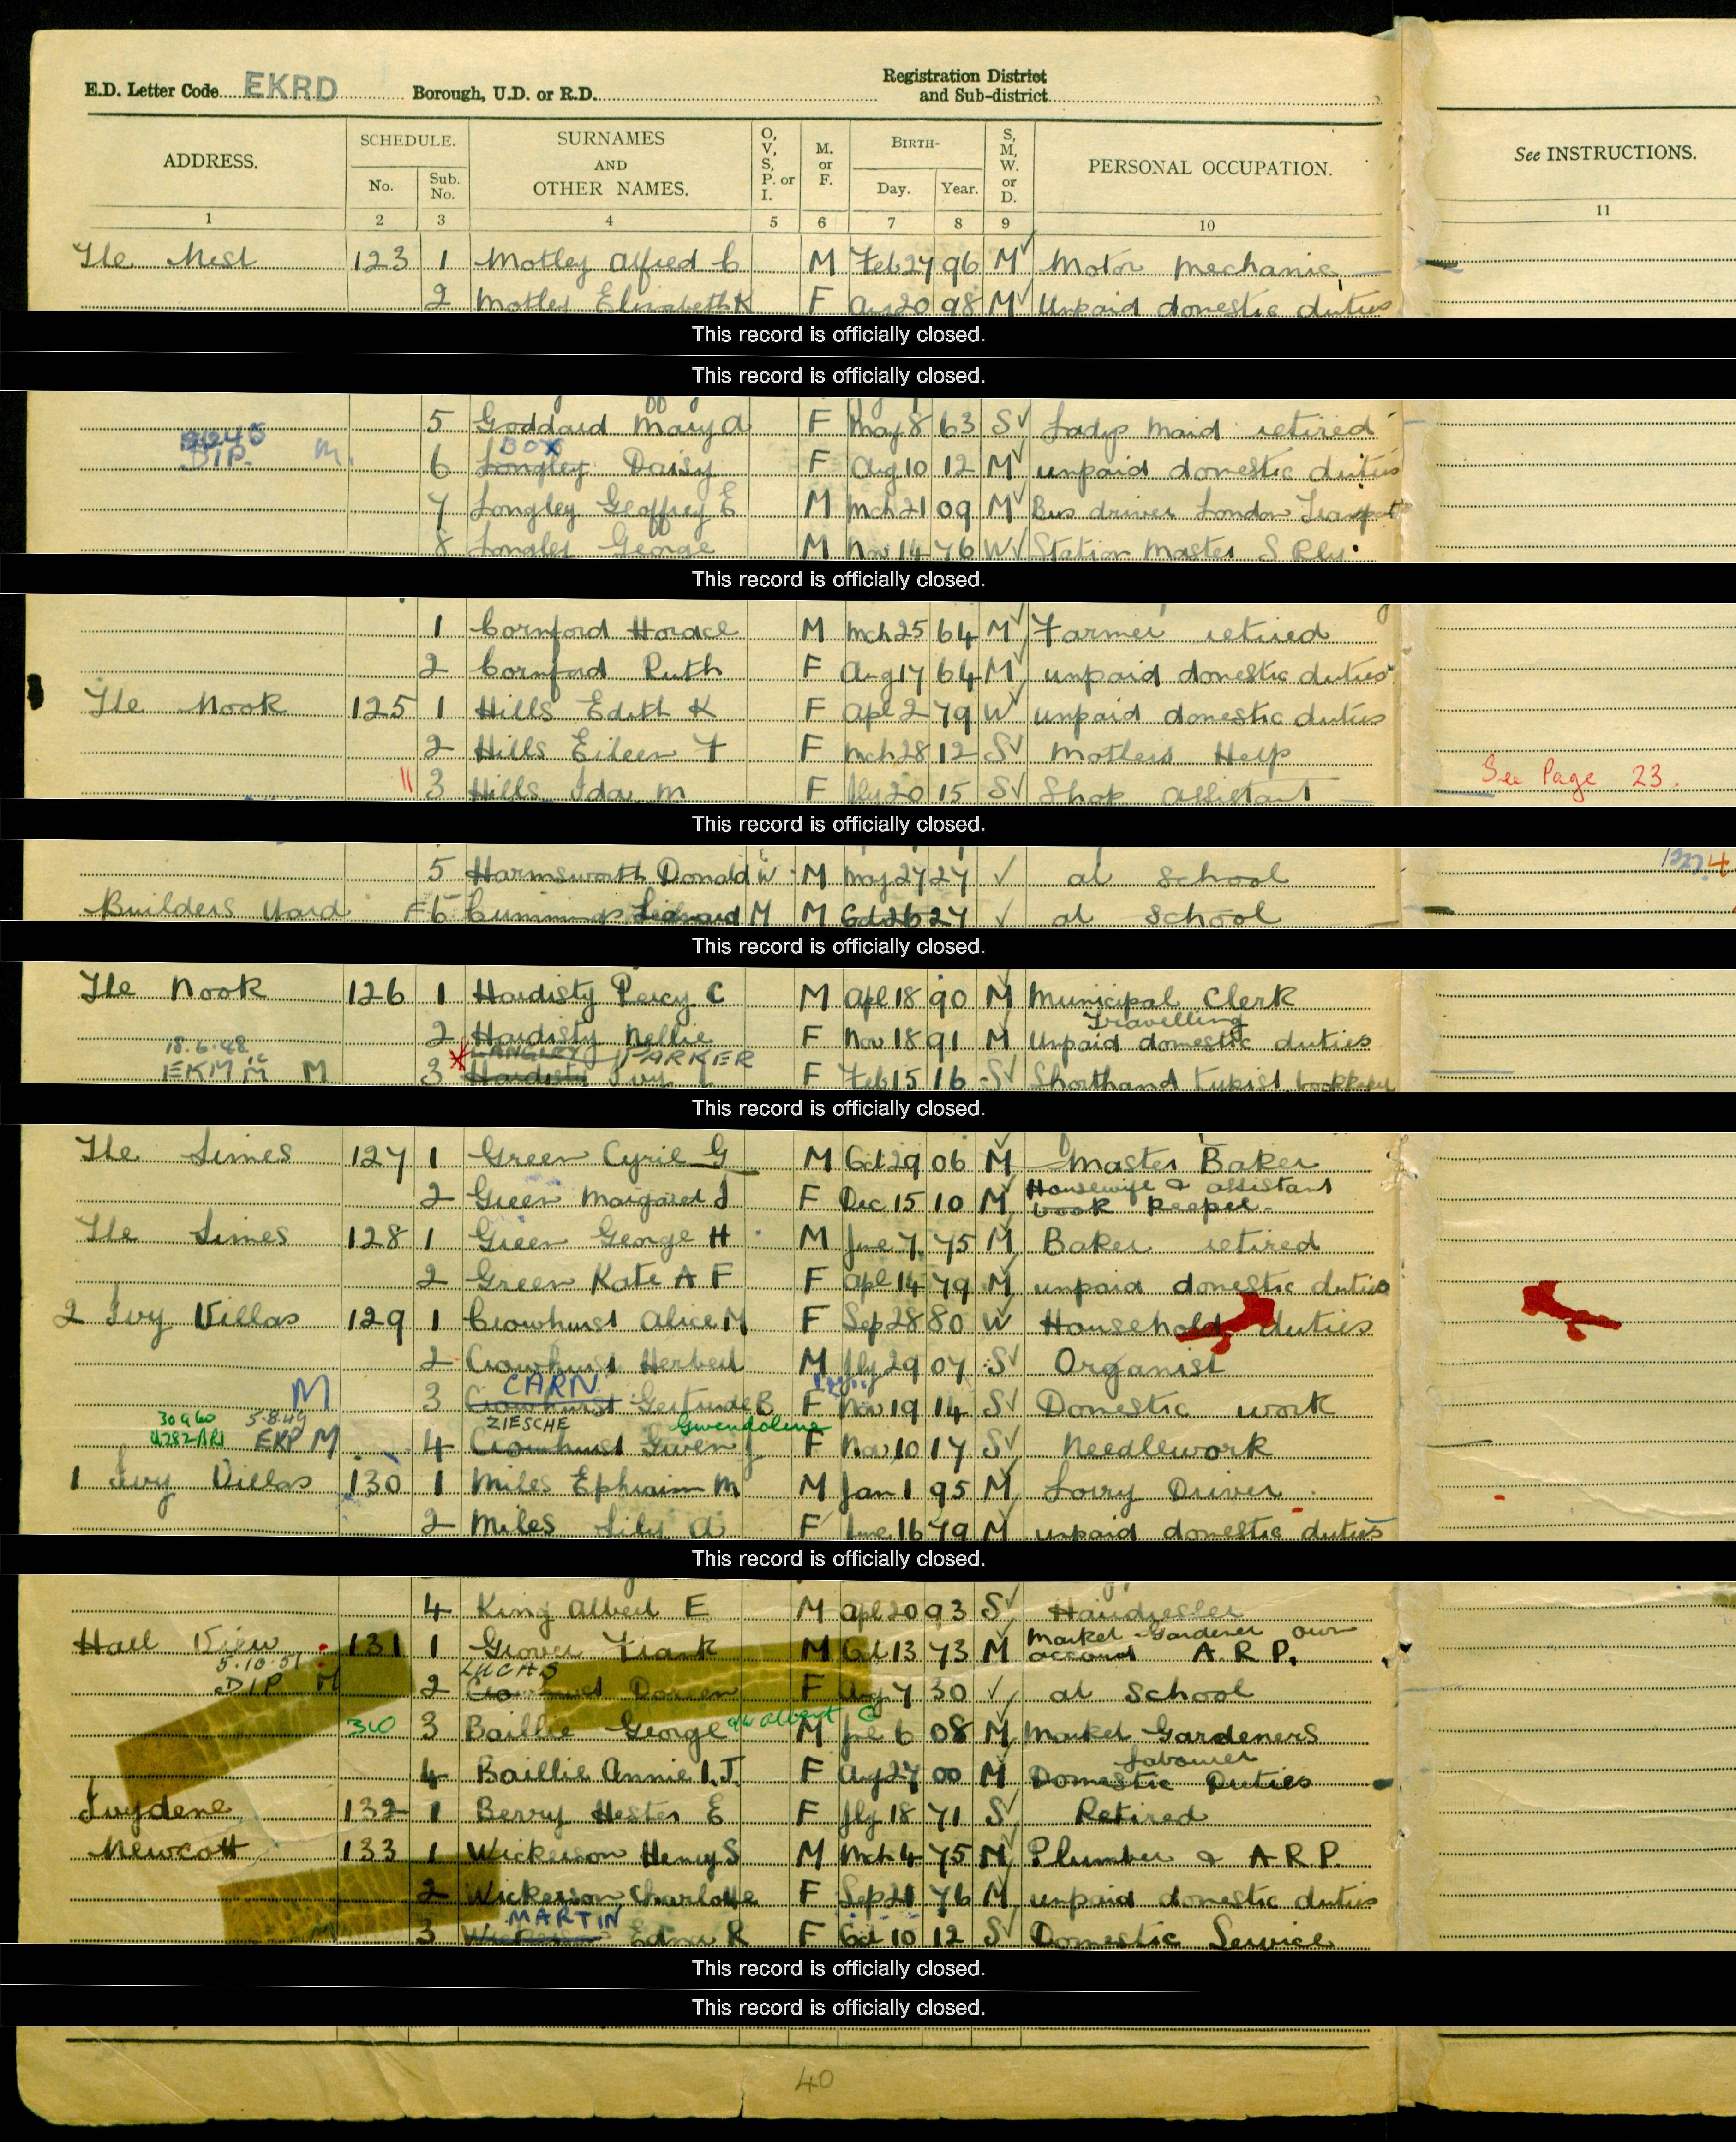 E.D. Letter Code EKRD Borough, U.D. or R.D. Registration District and Sub-district
ADDRESS. SCHEDULE. No. Sub. No. SURNAMES AND OTHER NAMES. O, V, S, P. or I. M. or F. BIRTH- Day. Year. S, M, W. or D. PERSONAL OCCUPATION. See INSTRUCTIONS.
1 2 3 4 5 6 7 8 9 10 11
The Nest 123 1 Motley Alfred C M Feb 27 96 M Motor mechanic
2 Motley Elizabeth K F Aug 20 98 M Unpaid domestic duties
This record is officially closed.
This record is officially closed.
5 Goddard Mary A F May 8 63 S Ladys maid retired
DIP. M. BOX
6 Longley Daisy F Aug 10 12 M unpaid domestic duties
7 Longley Geoffrey E M Mch 21 09 M Bus driver London Transport
8 Longley George M Nov 14 76 W Station Master S Rly
This record is officially closed.
1 Cornford Horace M Mch 25 64 M Farmer retired
2 Cornford Ruth F Aug 17 64 M unpaid domestic duties
The Nook 125 1 Hills Edith K F Apl 2 79 W unpaid domestic duties
2 Hills Eileen F F Mch 28 12 S Mothers Help
3 Hills Ida M F Jly 20 15 S Shop assistant See Page 23.
This record is officially closed.
5 Harmsworth Donald W M May 27 27 at school
Builders Yard 6 Cummings Leonard M M Oct 26 27 at school
This record is officially closed.
The Nook 126 1 Hardisty Percy C M Apl 18 90 M Municipal Clerk
Travelling
2 Hardisty Nellie F Nov 18 91 M Unpaid domestic duties
18.6.48 LANGLEY PARKER
EKM M 3 Hardisty Ivy F Feb 15 16 S Shorthand typist bookkeeper
This record is officially closed.
The Limes 127 1 Green Cyril G M Oct 29 06 M Master Baker
2 Green Margaret J F Dec 15 10 M Housewife & assistant book keeper
The Limes 128 1 Green George H M June 7 75 M Baker retired
2 Green Kate A F F Apl 14 79 M unpaid domestic duties
2 Ivy Villas 129 1 Crowhurst Alice M F Sep 28 80 W Household duties
2 Crowhurst Herbert M Jly 29 07 S Organist
M CARN
3 Crowhurst Gertrude B F Nov 19 14 S Domestic work
5.8.49 ZIESCHE Gwendolene
EKP M 4 Crowhurst Gwen F Nov 10 17 S Needlework
1 Ivy Villas 130 1 Miles Ephraim M M Jan 1 95 M Lorry Driver
2 Miles Lily A F June 16 79 M unpaid domestic duties
This record is officially closed.
4 King Albert E M Apl 20 93 S Hairdresser
Hall View 131 1 Grover Frank M Oct 13 73 M Market Gardener own account A.R.P.
5.10.51 LUCAS
DIP M 2 Crowhurst Doreen F Aug 7 30 at school
3 Baillie George Albert G M 6 08 M Market Gardeners
Labourer
4 Baillie Annie I.J. F Aug 27 00 M Domestic Duties
Ivydene 132 1 Berry Hester E F Jly 18 71 S Retired
Newcott 133 1 Wickerson Henry S M Mch 4 75 M Plumber & A.R.P.
2 Wickerson Charlotte F Sep 21 76 M unpaid domestic duties
MARTIN
3 Wickerson Edna R F Oct 10 12 S Domestic Service
This record is officially closed.
This record is officially closed.
40